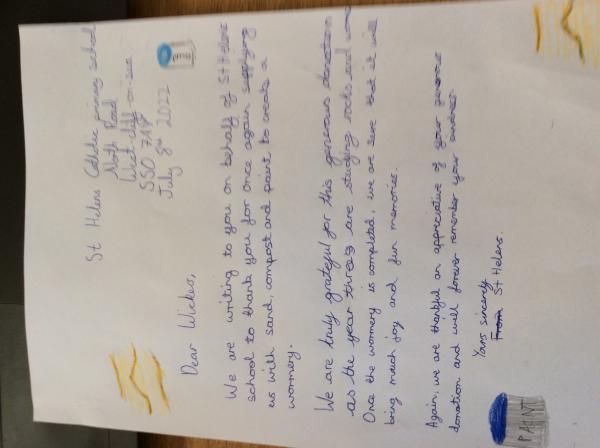 St Helens Catholic primary school
North Road
West cliff-on-sea
SS0 7AY
July 8th 2022
Dear Wickes,
We are writing to you on behalf of St Helens
school to thank you for once again supplying
us with sand, compost and paint to create a
wormery.
We are truly grateful for this generous donation
as the year threes are studying rocks and worms
Once the wormery is completed, we are sure that it will
bring much joy and fun memories.
Again, we are thankful an appreciative of your generous
donation and will forever remember your kindness.
Yours sincerely
From St Helens.
PAINT